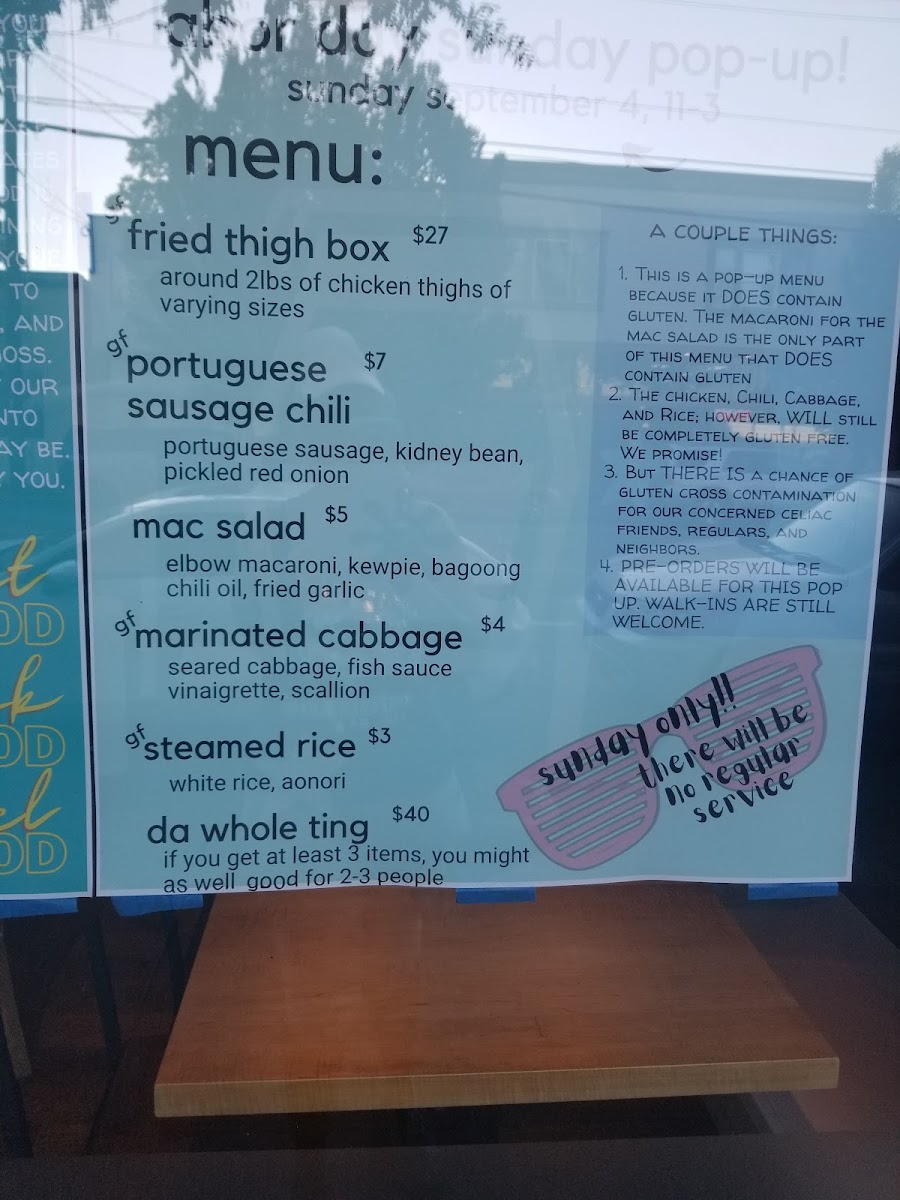 labor day sunday pop-up!
sunday september 4, 11-3
menu:
gf
fried thigh box $27
around 2lbs of chicken thighs of
varying sizes
gf
portuguese $7
sausage chili
portuguese sausage, kidney bean,
pickled red onion
mac salad $5
elbow macaroni, kewpie, bagoong
chili oil, fried garlic
gf
marinated cabbage $4
seared cabbage, fish sauce
vinaigrette, scallion
gf
steamed rice $3
white rice, aonori
da whole ting $40
if you get at least 3 items, you might
as well good for 2-3 people
A COUPLE THINGS:
1. THIS IS A POP-UP MENU
BECAUSE IT DOES CONTAIN
GLUTEN. THE MACARONI FOR THE
MAC SALAD IS THE ONLY PART
OF THIS MENU THAT DOES
CONTAIN GLUTEN
2. THE CHICKEN, CHILI, CABBAGE,
AND RICE; HOWEVER, WILL STILL
BE COMPLETELY GLUTEN FREE.
WE PROMISE!
3. BUT THERE IS A CHANCE OF
GLUTEN CROSS CONTAMINATION
FOR OUR CONCERNED CELIAC
FRIENDS, REGULARS, AND
NEIGHBORS.
4. PRE-ORDERS WILL BE
AVAILABLE FOR THIS POP
UP. WALK-INS ARE STILL
WELCOME.
sunday only!!
there will be
no regular
service
TO
, AND
OSS.
OUR
NTO
AY BE.
YOU.
t
OD
k
OD
el
OD